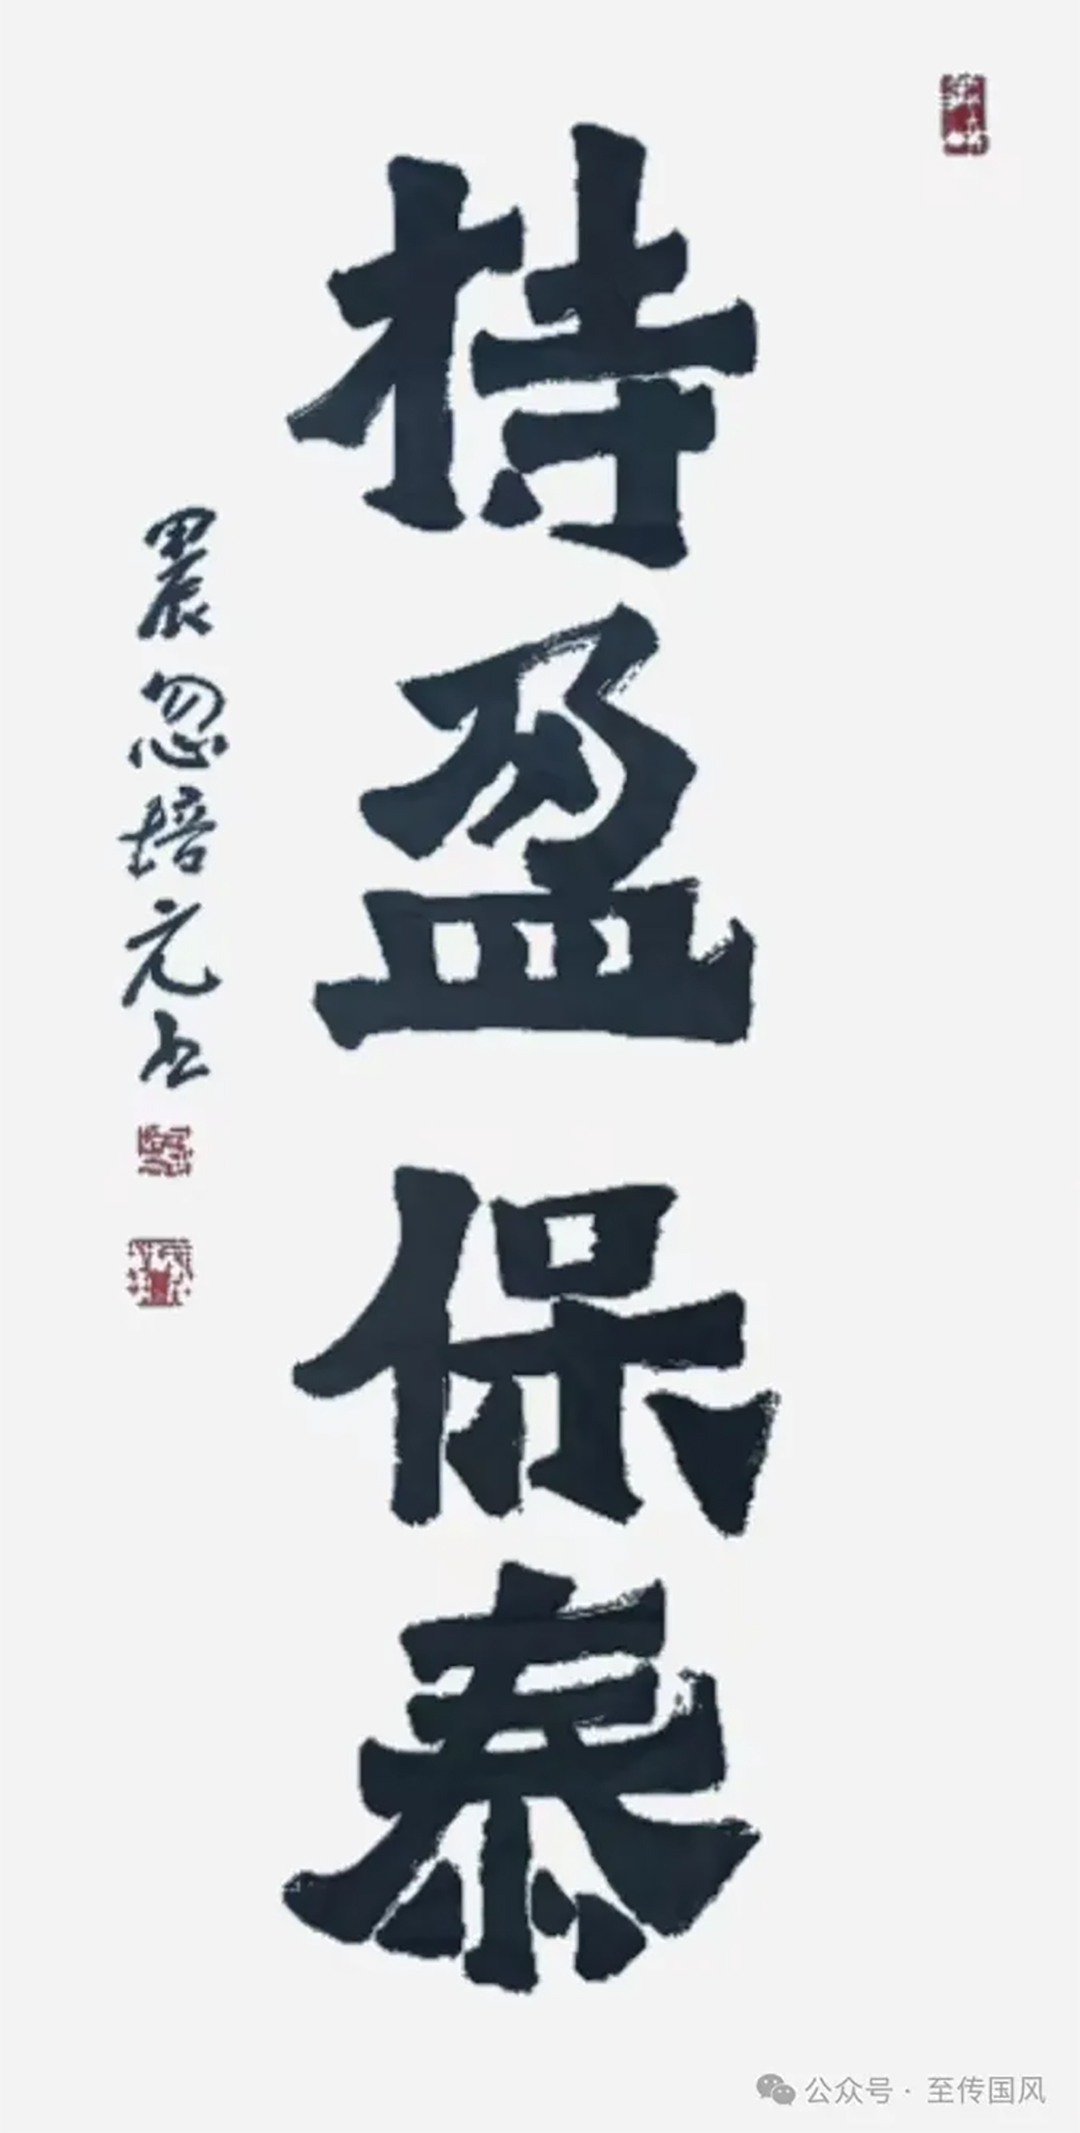 持盈保泰
忽培元书
公众号 · 至传国风